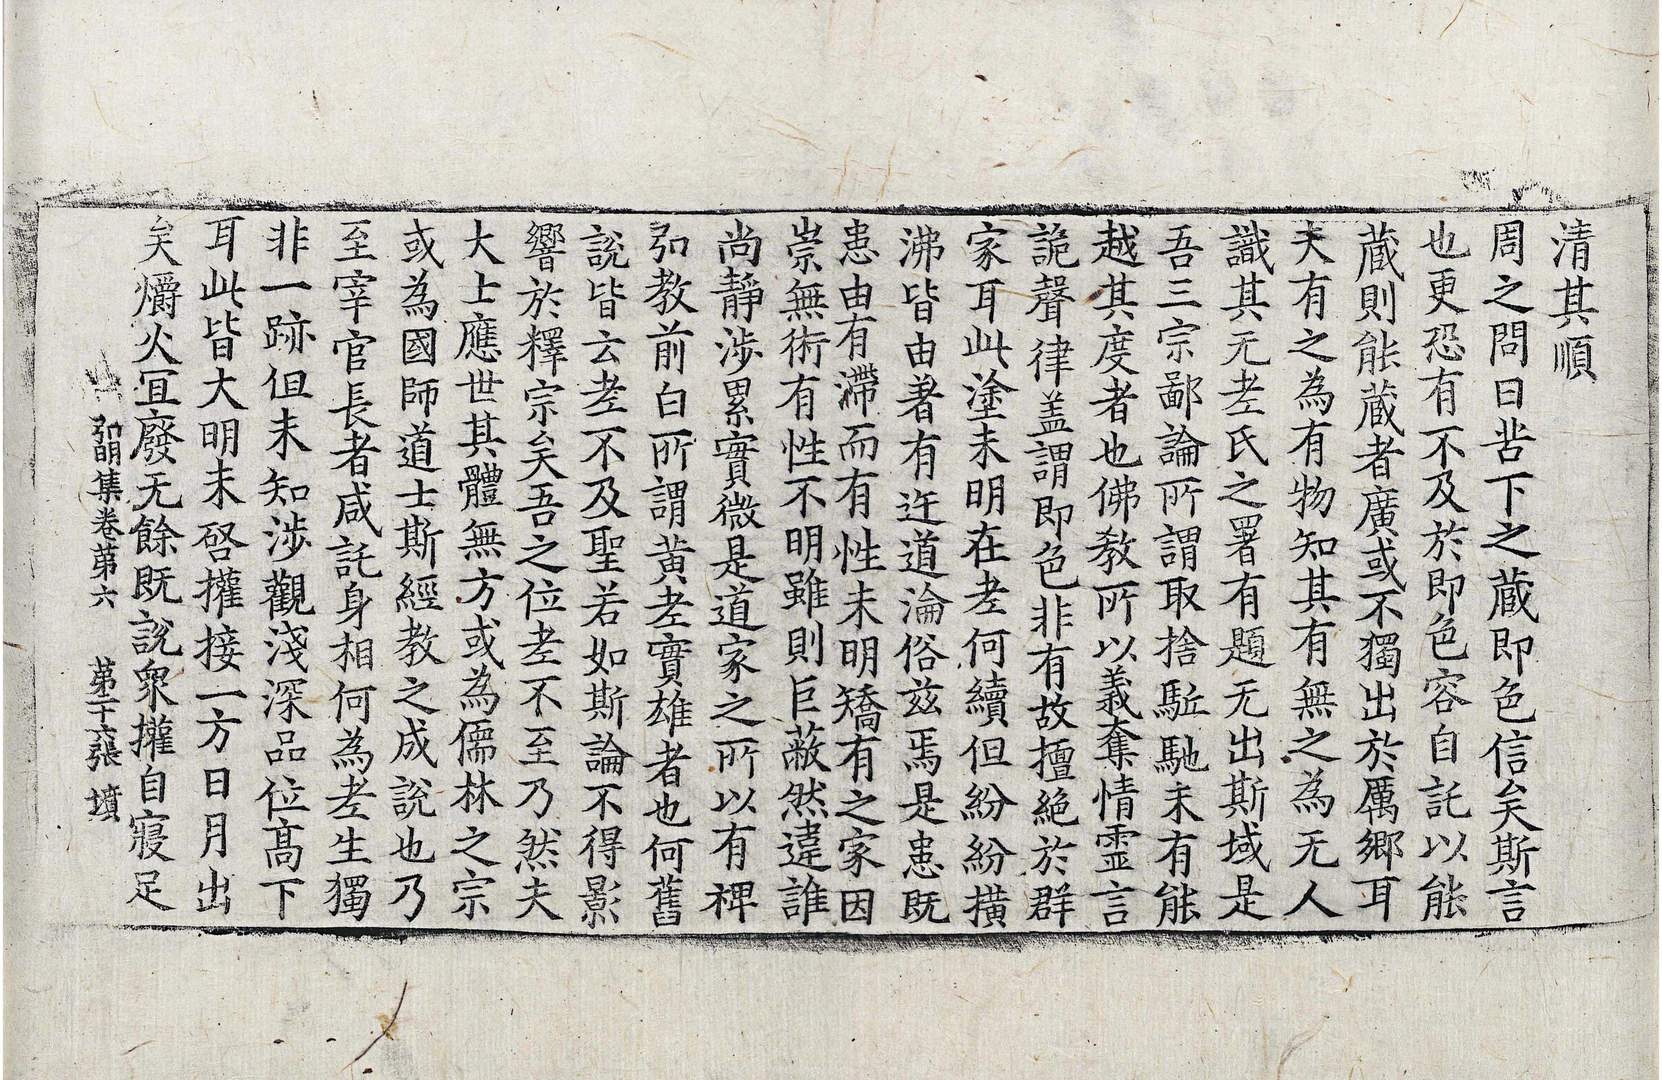 清其順
周之問曰苦下之藏即色信矣斯言
也更恐有不及於即色容自託以能
藏則能藏者廣或不獨出於厲鄉耳
夫有之為有物知其有無之為无人
識其无老氏之署有題无出斯域是
吾三宗鄙論所謂取捨駈馳未有能
越其度者也佛教所以義奪情靈言
詭聲律盖謂即色非有故擅絶於群
家耳此塗未明在老何續但紛紛橫
沸皆由著有迕道淪俗兹焉是患既
患由有滯而有性未明矯有之家因
崇無術有性不明雖則巨蔽然違誰
尚靜涉累實微是道家之所以有裨
弘教前白所謂黄老實雄者也何舊
說皆云老不及聖若如斯論不得影
響於釋宗矣吾之位老不至乃然夫
大士應世其體無方或為儒林之宗
或為國師道士斯經教之成說也乃
至宰官長者咸託身相何為老生獨
非一跡但未知涉觀淺深品位高下
耳此皆大明未啓權接一方日月出
矣爝火冝廢无餘既說衆權自寢足
弘明集卷苐六 苐二十六張 墳